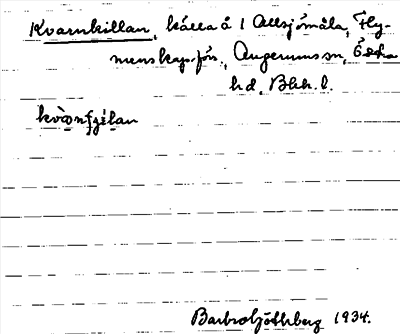 Kvarnkillan, källa å 1 Allsjömåla, Fly-
menskap.förs., Augerums sn, Östra
hd, Blek. l.
kvȯnʃɛ́lan
Barbro Göthberg 1934.